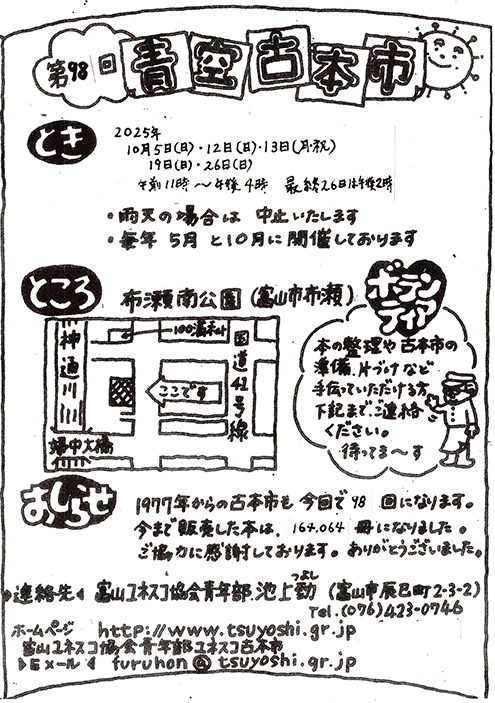 第98回 青空古本市
とき
2025年
10月5日(日)・12日(日)・13日(月・祝)
19日(日)・26日(日)
午前11時～午後4時 最終26日は午後2時
・雨天の場合は 中止いたします
・毎年 5月 と10月に開催しております
ところ
布瀬南公園 (富山市布瀬)
神通川
100満ボルト
国道41号線
ここです
婦中大橋
ボランティア
本の整理や古本市の
準備、片づけなど
手伝っていただける方
下記までご連絡
ください。
待ってま～す
おしらせ
1977年からの古本市も 今回で 98 回になります。
今まで販売した本は、164,064 冊になりました。
ご協力に感謝しております。ありがとうございました。
連絡先 富山ユネスコ協会青年部 池上勁 (富山市辰巳町2-3-2)
つよし
Tel.(076)423-0746
ホームページ http://www.tsuyoshi.gr.jp
富山ユネスコ協会青年部ユネスコ古本市
Eメール furuhon@tsuyoshi.gr.jp